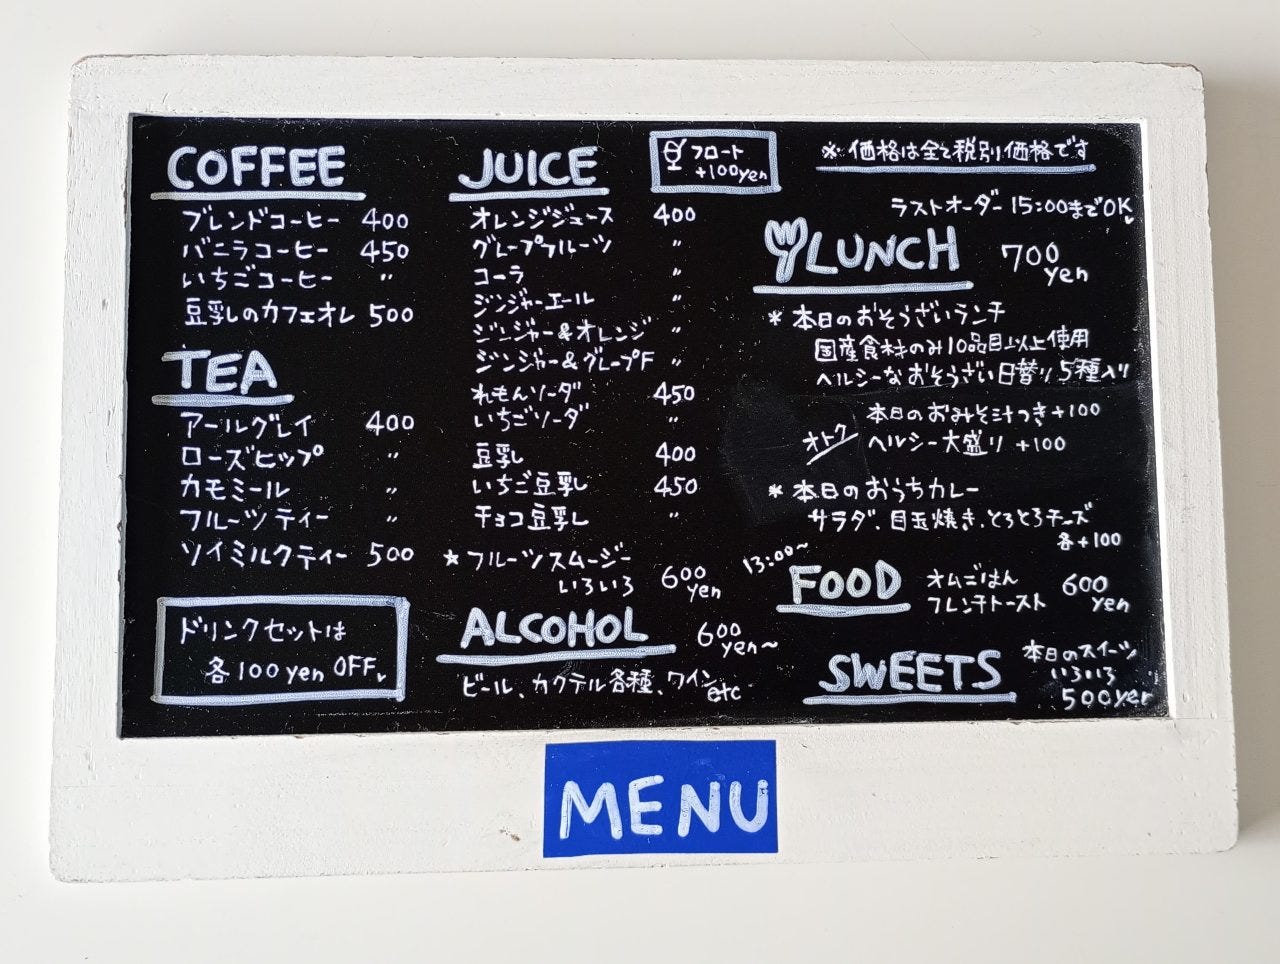 COFFEE
ブレンドコーヒー 400
バニラコーヒー 450
いちごコーヒー 〃
豆乳しのカフェオレ 500
TEA
アールグレイ 400
ローズヒップ 〃
カモミール 〃
フルーツティー 〃
ソイミルクティー 500
ドリンクセットは
各100yen OFF
JUICE
フロート
+100yen
オレンジジュース 400
グレープフルーツ 〃
コーラ 〃
ジンジャーエール 〃
ジンジャー&オレンジ 〃
ジンジャー&グレープF 〃
れもんソーダ 450
いちごソーダ 〃
豆乳 400
いちご豆乳 450
チョコ豆乳 〃
★フルーツスムージー
いろいろ 600yen
ALCOHOL 600yen~
ビール、カクテル各種、ワイン etc
※価格は全て税別価格です
ラストオーダー 15:00までOK
LUNCH 700yen
*本日のおそうざいランチ
国産食材のみ10品目以上使用
ヘルシーなおそうざい日替り5種入り
本日のおみそ汁つき+100
オトク ヘルシー大盛り +100
*本日のおうちカレー
サラダ、目玉焼き、とろとろチーズ
各+100
13:00~
FOOD オムごはん
フレンチトースト 600yen
SWEETS 本日のスイーツ
いろいろ
500yen
MENU